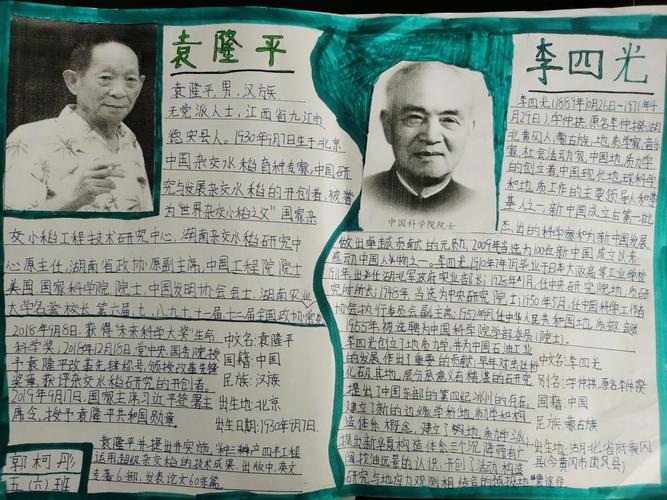 袁隆平
袁隆平,男,汉族
无党派人士,江西省九江市
德安县人。1930年9月7日生于北京
中国杂交水稻育种专家,中国研
究与发展杂交水稻的开创者,被誉
为"世界杂交水稻之父"国家杂
交水稻工程技术研究中心、湖南杂交水稻研究中
心原主任,湖南省政协原副主席,中国工程院院士
美国国家科学院院士,中国发明协会会士,湖南农业
大学名誉校长,第六届七、八九十十一届十二届全国政协常委
2018年9月8日,获得"未来科学大奖"生命
科学奖;2018年12月18日,党中央、国务院授
予袁隆平改革先锋称号,颁授改革先锋
奖章,获评杂交水稻研究的开创者。
2019年9月17日,国家主席习近平签署主
席令,授予袁隆平共和国勋章。
中文名:袁隆平
国籍:中国
民族:汉族
出生地:北京
出生日期:1930年9月7日
袁隆平并提出并实施"种三产四丰工程
运用超级杂交稻的技术成果,出版中、英文
专著6部,发表论文60余篇
郭柯彤
五(六)班
李四光
李四光(1889年10月26日—1971年4
月29日),字仲拱,原名李仲揆,湖
北黄冈人,蒙古族,地质学家、音乐
家、社会活动家,中国地质力学
的创立者、中国现代地球科学
和地质工作的主要领导人和奠
基人之一,新中国成立后第一批
杰出的科学家和为新中国发展
中国科学院院士
做出卓越贡献的元勋,2009年当选为100位新中国成立以来
感动中国人物之一。李四光,1910年7月毕业于日本大阪高等工业学校
1911年,出任湖北军政府实业部长;1928年1月,任中央研究院地质研
究所所长;1948年当选为中央研究院院士;1950年5月,任中国科学工作者
协会执行委员会副主席;1952年9月,任中华人民共和国地质部部长
1955年被选聘为中国科学院学部委员(院士)。
李四光创立了地质力学,并为中国石油工业
的发展作出了重要的贡献,早年对虫迁科
化石及其地层分系意义有精湛的研究
提出了中国东部的第四纪冰川的存在
建立了新的边缘学科地质力学和构
造体系概念,建立了构地质力学派;
提出新华夏构造体系三个沉降带有广
阔找油远景的认识,开创了活动构造
研究与地应力观测相结合的预报地
中文名:李四光
别名:字仲拱,原名李仲揆
国籍:中国
民族:蒙古族
出生地:湖北省黄冈
县(今黄冈市团风县)